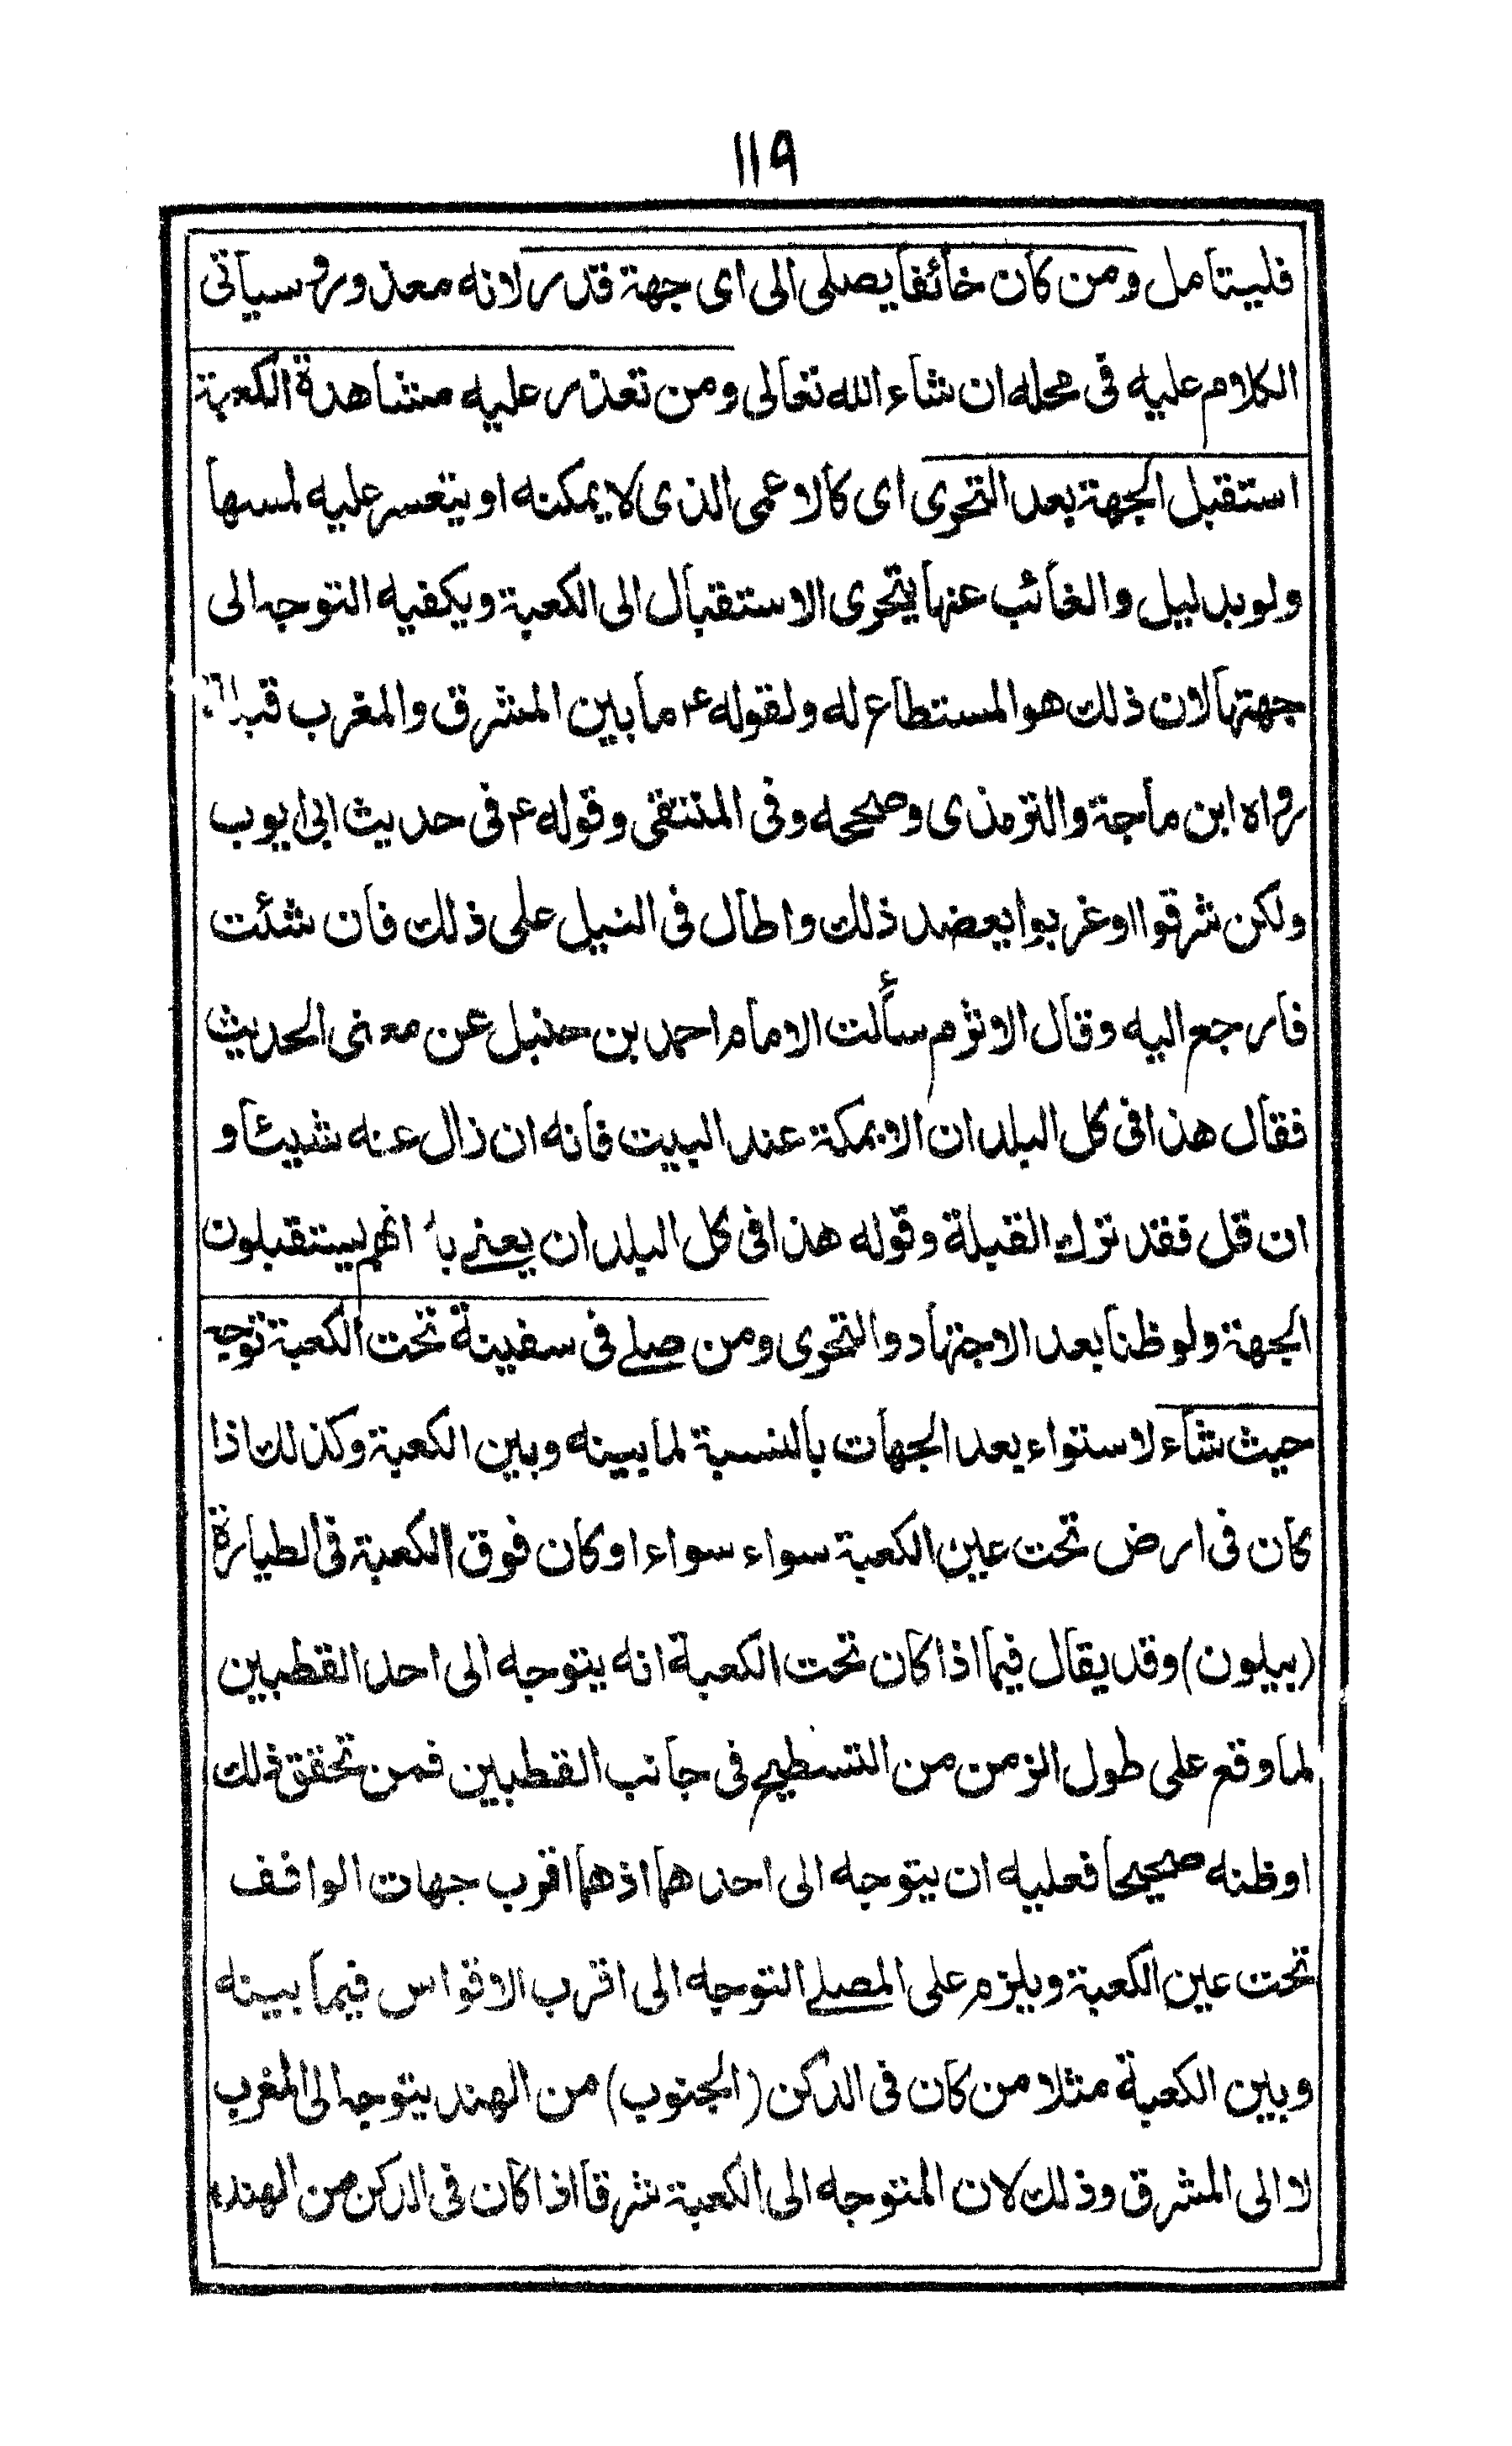 ۱۱۹
فليتامل ومن كان خائفا يصلى الى اى جهة قدر لانه معذور سياتى
الكلام عليه فى محله ان شاء الله تعالى ومن تعذر عليه مشاهدة الكعبة
استقبل الجهة بعد التحرى اى كالاعمى الذى لا يمكنه او يتعسر عليه لمسها
ولو بدليل والغائب عنها يتحرى الاستقبال الى الكعبة ويكفيه التوجه الى
جهتها لان ذلك هو المستطاع له ولقوله ع مابين المشرق والمغرب
رواه ابن ماجة والترمذى وصححه وفى المنتقى وقوله ع فى حديث ابى ايوب
ولكن شرقوا اوغربوا يعضد ذلك واطال فى النيل على ذلك فان شئت
فارجع اليه وقال الاثرم سألت الامام احمد بن حنبل عن معنى الحديث
فقال هذا فى كل البلدان الا بمكة عند البيت فانه ان زال عنه شيئا و
ان قل فقد ترك القبلة وقوله هذا فى كل البلدان يعنى انهم يستقبلون
الجهة ولو ظنا بعد الاجتهاد والتحرى ومن صلى فى سفينة تحت الكعبة توجه
حيث شاء لاستواء بعد الجهات بالنسبة لما بينه وبين الكعبة وكذلك اذا
كان فى ارض تحت عين الكعبة سواء سواء او كان فوق الكعبة فى الطيارة
(بيلون) وقد يقال فيما اذا كان تحت الكعبة انه يتوجه الى احد القطبين
لما وقع على طول الزمن من التسطيح فى جانب القطبين فمن تحقق ذلك
اوظنه صحيحا فعليه ان يتوجه الى احدهما اذهما اقرب جهات الواقف
تحت عين الكعبة ويلزم على المصلى التوجه الى اقرب الاقواس فيما بينه
وبين الكعبة مثلا من كان فى الدكن (الجنوب) من الهند يتوجه الى المغرب
لا الى المشرق وذلك لان المتوجه الى الكعبة شرقا اذا كان فى الدكن من الهند